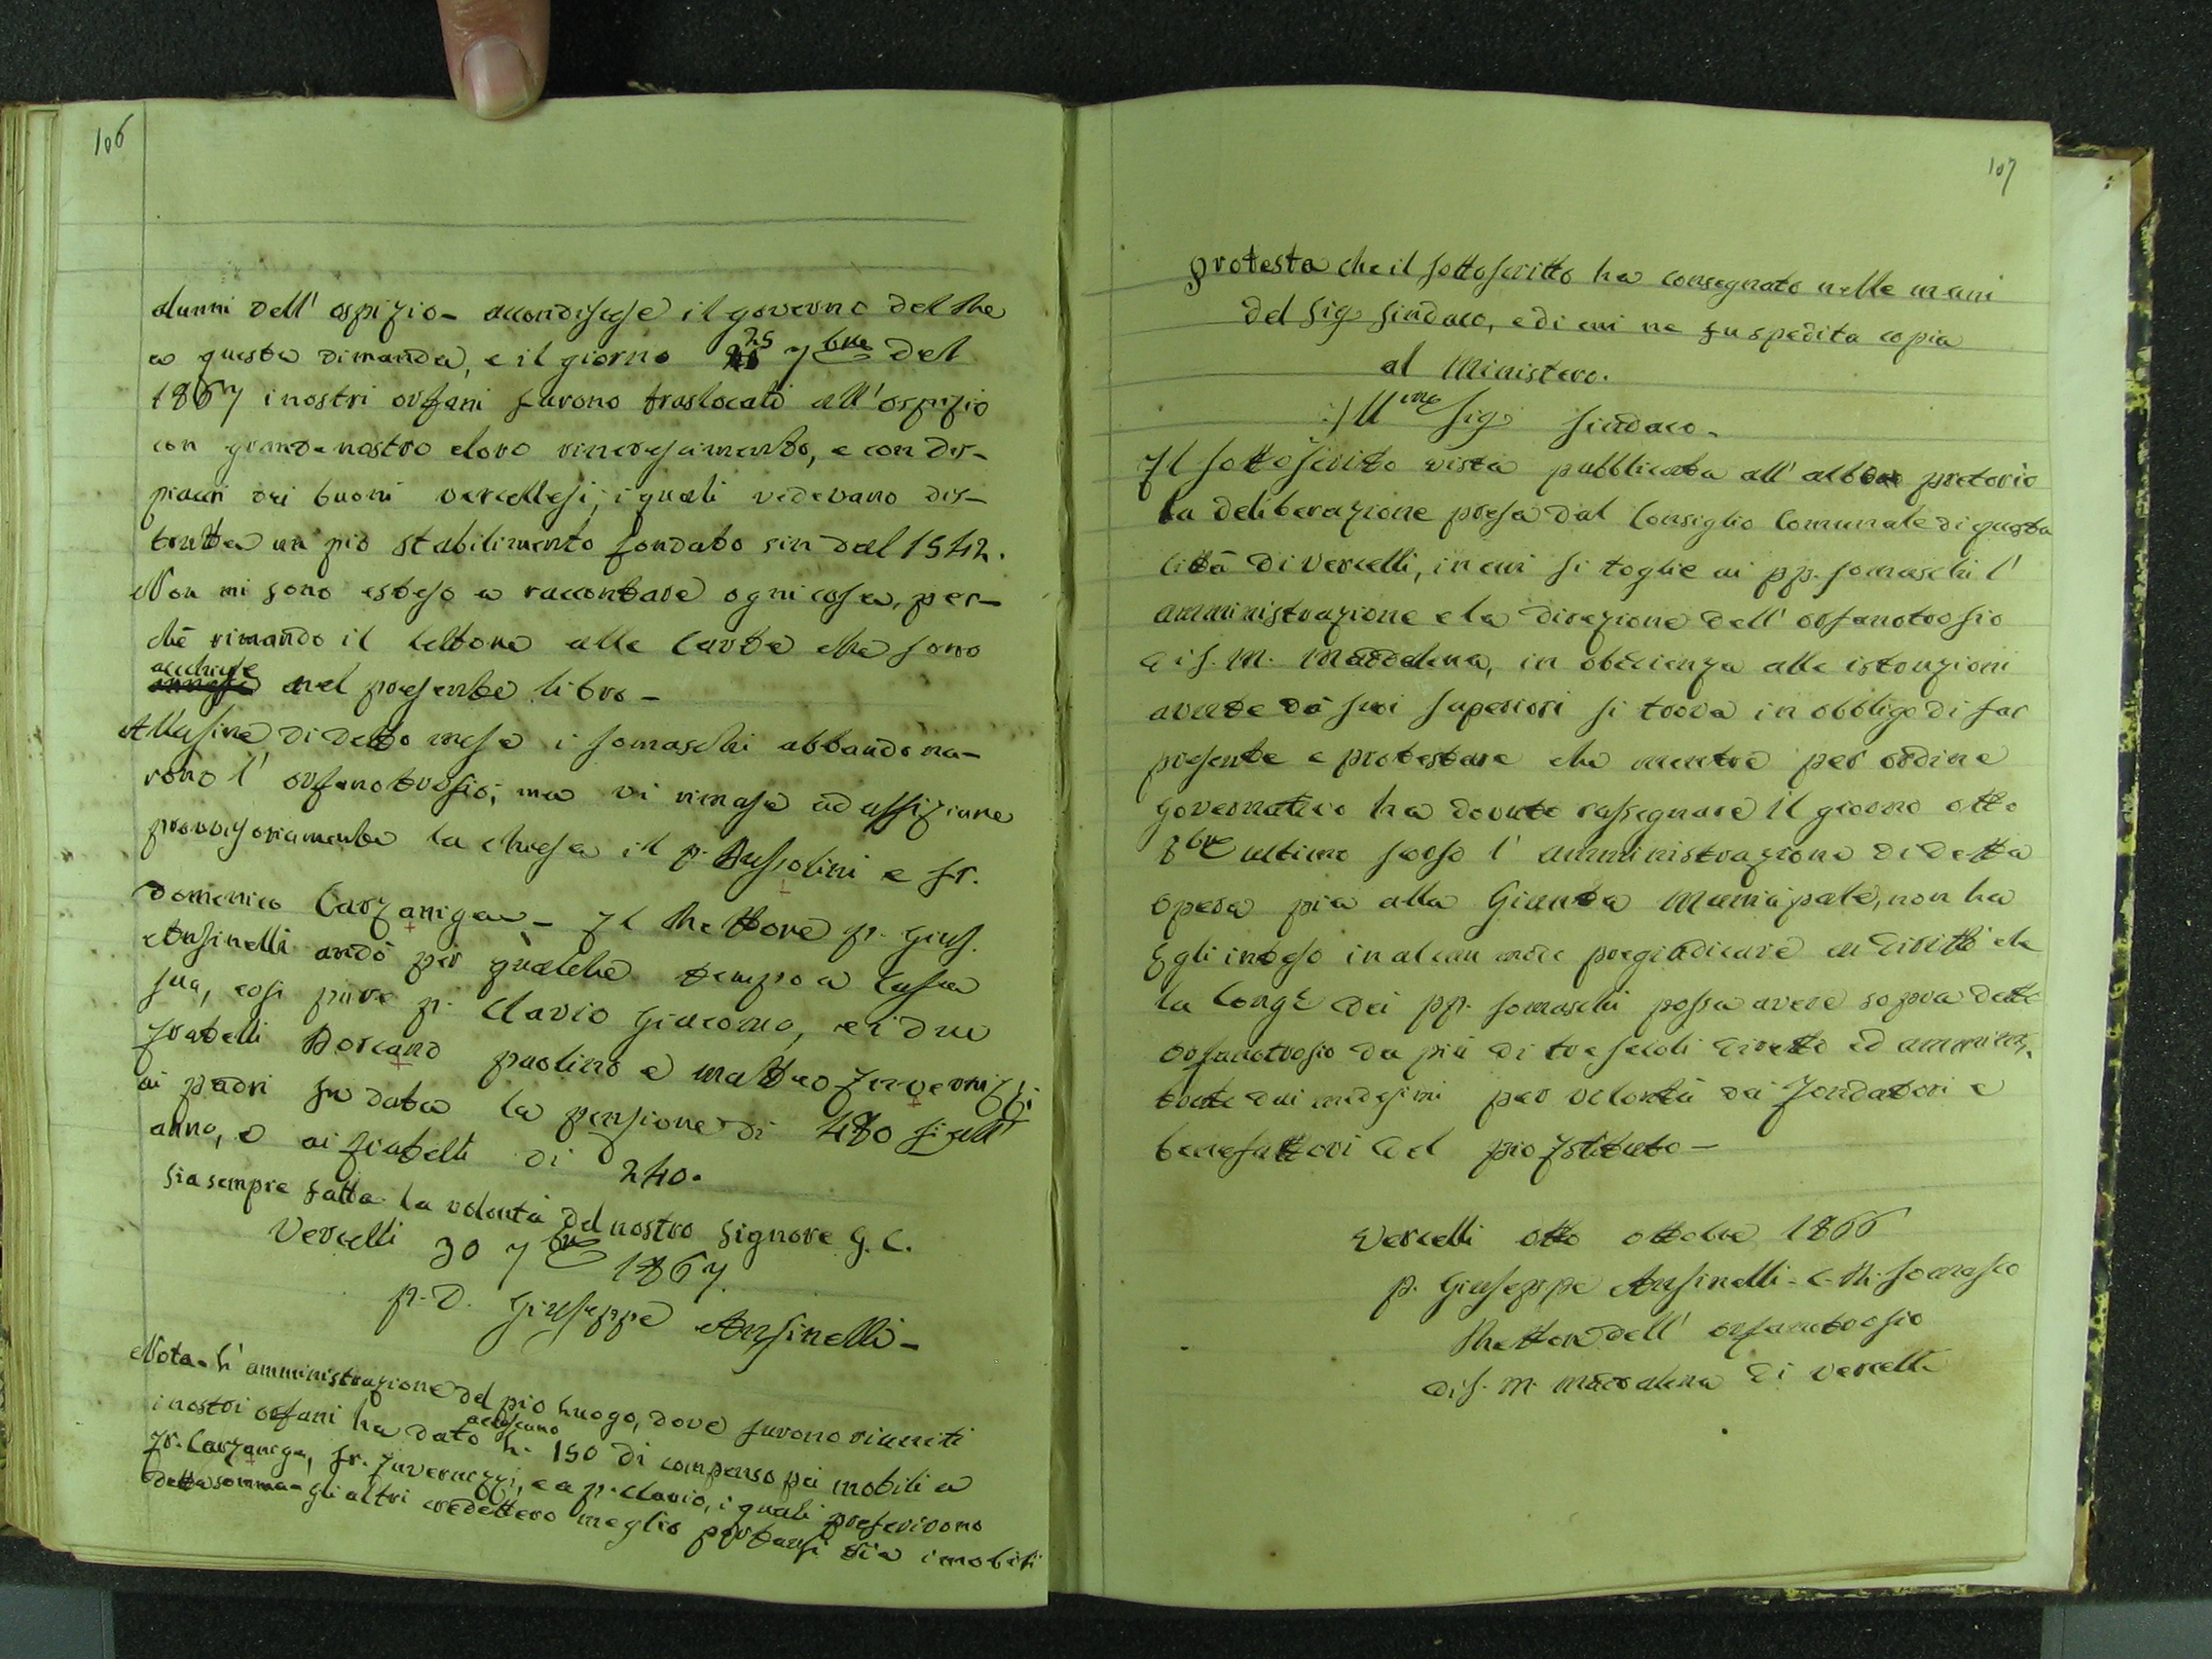 106
alunni dell' ospizio - accondiscese il governo del Re
a questa dimanda, e il giorno 25 7bre del
1867 i nostri orfani furono traslocati all' ospizio
con grande nostro e loro rincrescimento, e con dis-
piaceri dei buoni vercellesi, i quali vedevano dis-
trutta un pio stabilimento fondato sin dal 1542.
Non mi sono esteso a raccontare ogni cosa, per-
chè rimando il lettore alle carte che sono
acchiuse nel presente libro -
Alla fine di detto mese i somaschi abbandona-
rono l' orfanotrofio; ma vi rimase ad uffiziare
provvisoriamente la chiesa il p. Bussolini e fr.
Domenico Carzaniga - Il Rettore p. Gius.
Ansinelli andò per qualche tempo a casa
sua, così pure p. Clavio Giacomo, e i due
fratelli Borcano paolino e matteo Invernizzi
ai padri fu data la pensione di 480 fi all'
anno, e ai fratelli di 240.
Sia sempre fatta la volontà del nostro Signore G. C.
Vercelli 30 7bre 1867
p. D. Giuseppe Ansinelli -
Nota - L' amministrazione del pio luogo, dove furono riuniti
i nostri orfani ha dato a ciascuno L. 150 di compenso pei mobili a
fr. Carzaniga, fr. Invernizzi, e a p. Clavio, i quali preferirono
detta somma - gli altri credettero meglio portarsi via i mobili
107
protesta che il sottoscritto ha consegnato nelle mani
del Sig. Sindaco, e di cui ne fu spedita copia
al Ministero.
Illmo Sig. Sindaco.
Il sottoscritto vista pubblicata all' albo pretorio
la deliberazione presa dal Consiglio Comunale di questa
Città di Vercelli, in cui si toglie ai pp. somaschi l'
amministrazione e la direzione dell' orfanotrofio
di S. M. Maddalena, in obbedienza alle istruzioni
avute da' suoi superiori si trova in obbligo di far
presente e protestare che mentre per ordine
governativo ha dovuto rassegnare il giorno otto
8bre ultimo scorso l' amministrazione di detta
opera pia alla Giunta Municipale, non ha
Egli inteso in alcun modo pregiudicare ai diritti che
la Congne dei pp. somaschi possa avere sopra detto
orfanotrofio da più di tre secoli diretto ed amminis-
trato dai medesimi per volontà dei fondatori e
benefattori del pio Istituto -
Vercelli otto ottobre 1866
p. Giuseppe Ansinelli - C. R. Somasco
Rettore dell' orfanotrofio
di S. M. Maddalena di Vercelli